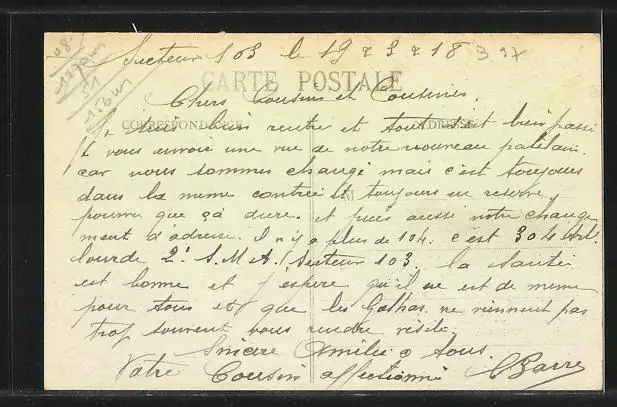 Secteur 103 le 19 3 18
CARTE POSTALE
Chers Cousins et Cousines,
CORRESPONDANCE ADRESSE
suis bien rentré et tout s'est bien passé
vous envoie une vue de notre nouveau patelin.
car nous sommes changé mais c'est toujours
dans la meme contrée et toujours en reserve,
pourvu que ça dure. et puis aussi notre change
ment d'adresse. il n'y a plus de 104. c'est 304 Art.
lourde 2e S.M.A. Secteur 103. la santé
est bonne et j'espere qu'il en est de meme
pour tous et que les Gothas ne viennent pas
trop souvent vous rendre visite.
Sincère Amitié a tous
Votre Cousin affectionné Barre